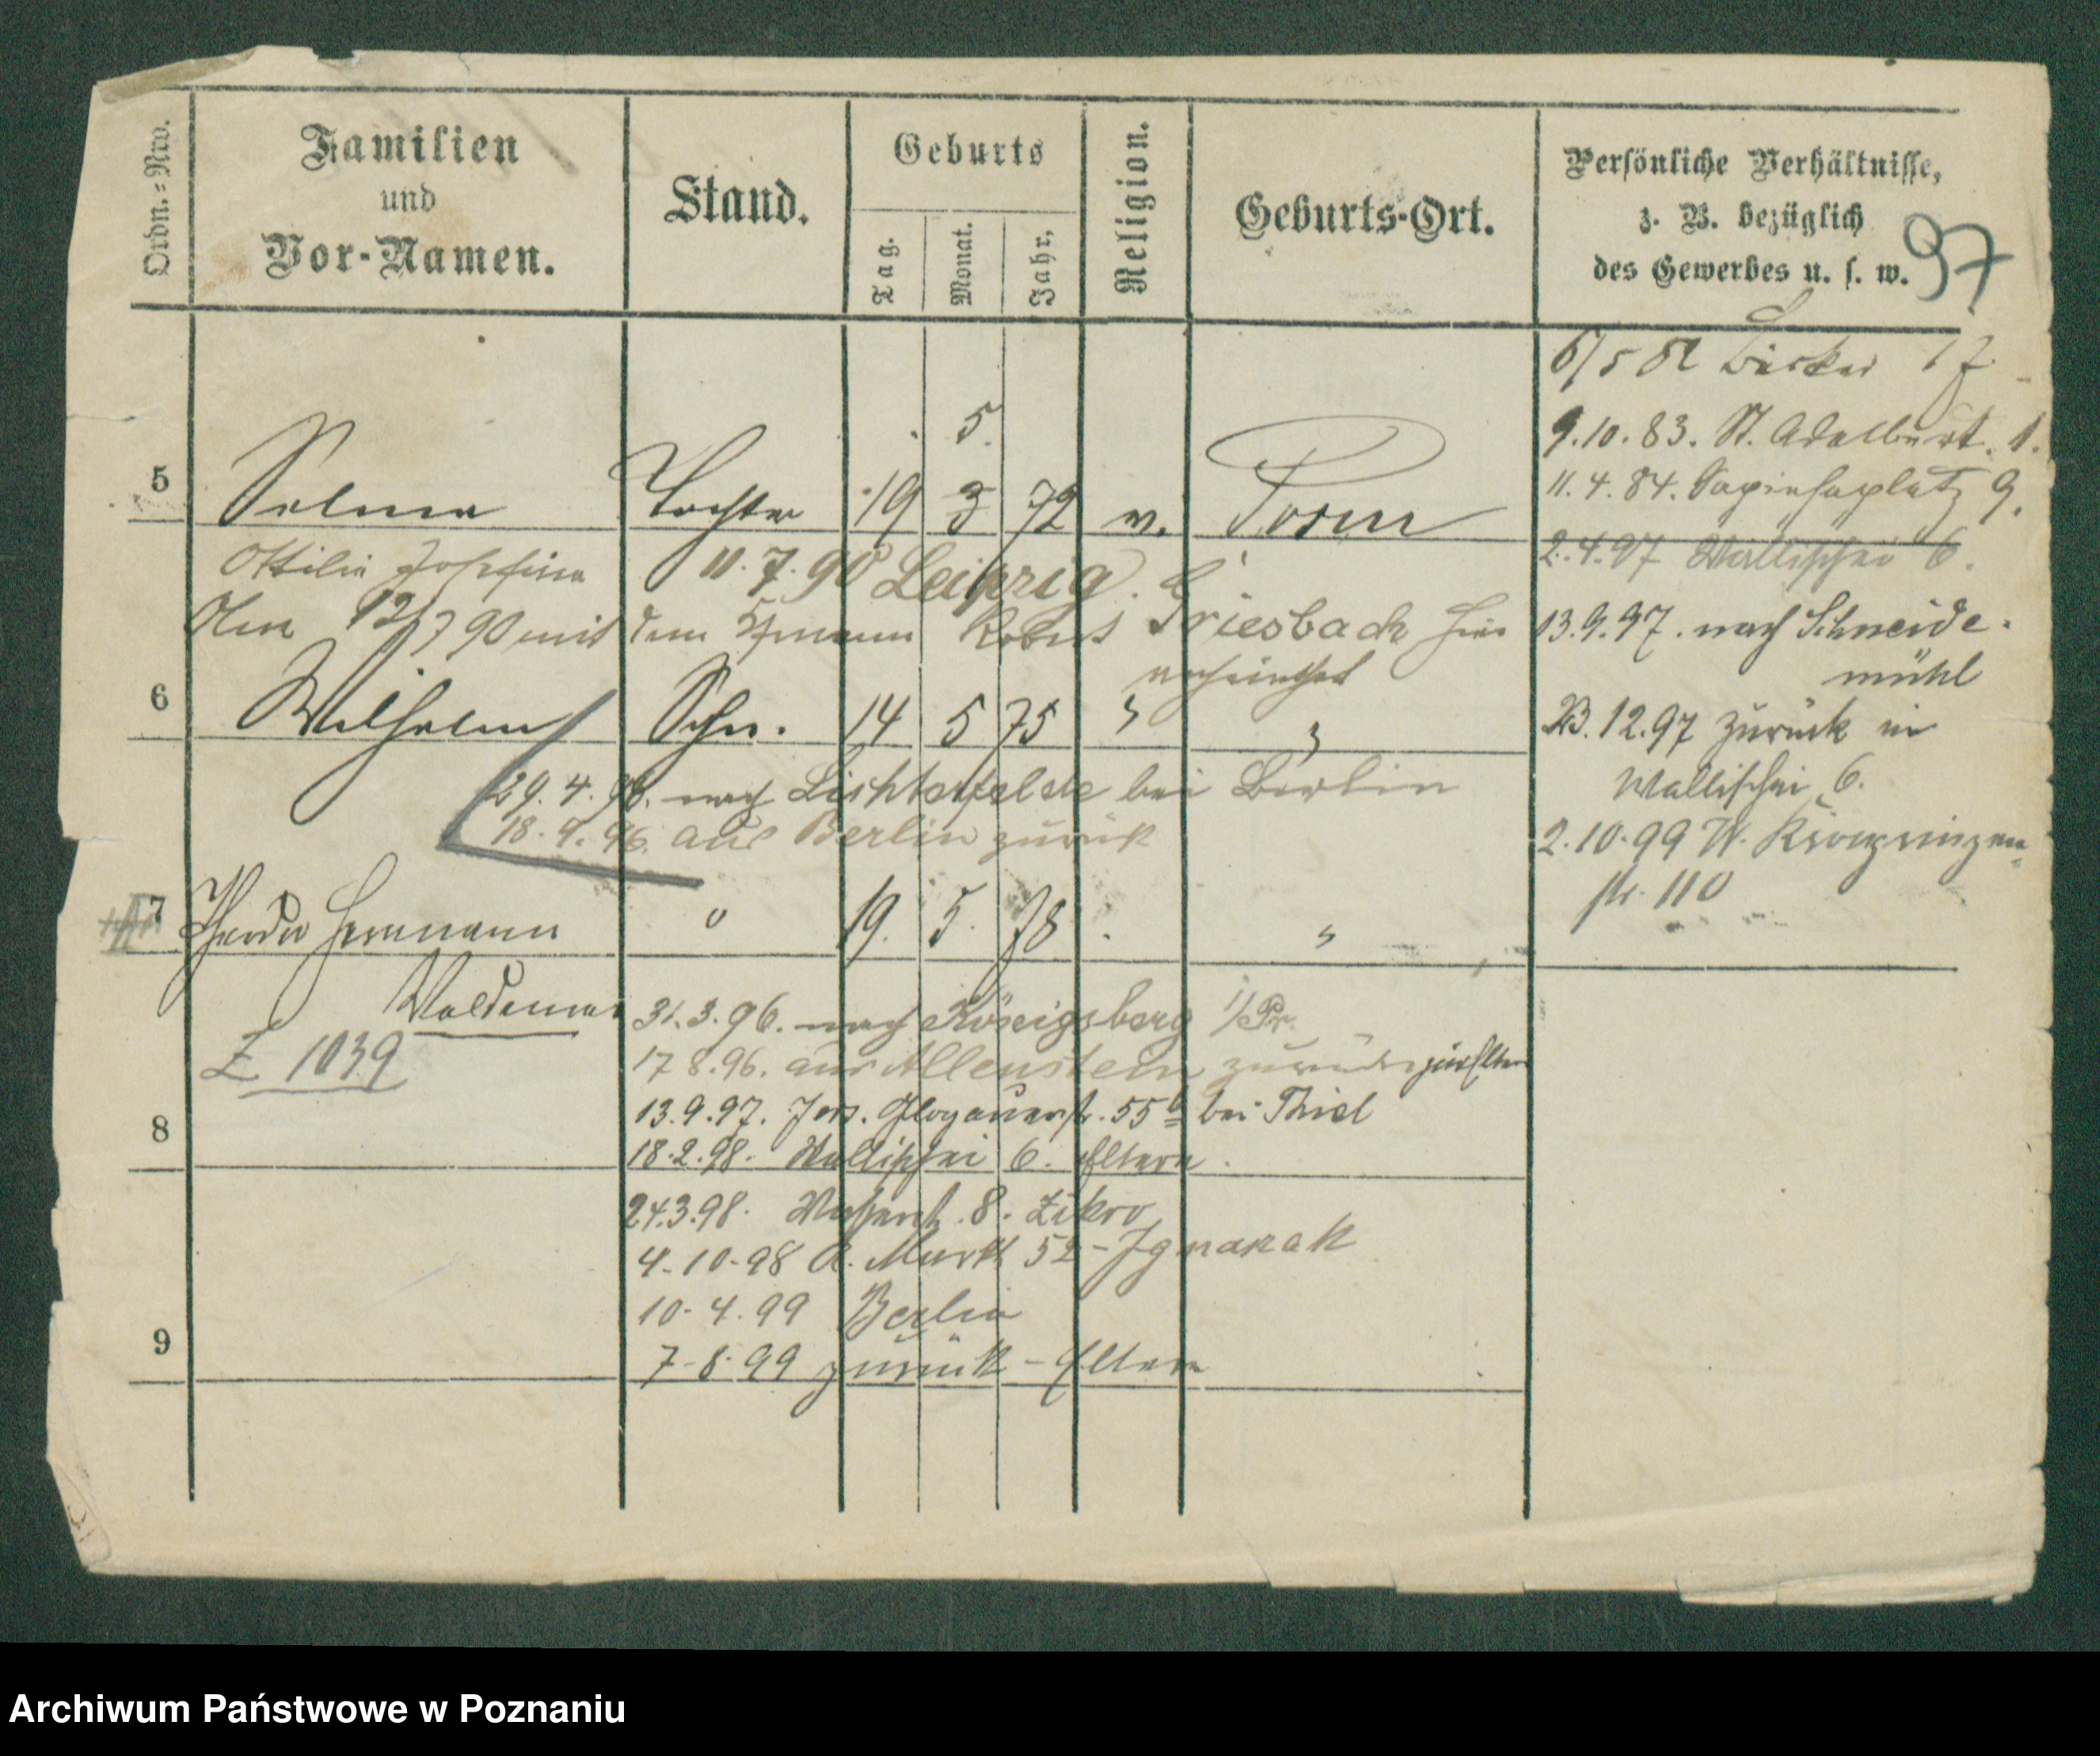 Ordn.=Nro.
Familien
und
Vor-Namen.
Stand.
Geburts
Tag.
Monat.
Jahr.
Religion.
Geburts-Ort.
Persönliche Verhältnisse,
z. B. bezüglich
des Gewerbes u. s. w.
97
5
5 Selma Tochter 19 3 72 Posen
Ottilie Josefina 11. 7. 90 Leipzig.
12/7 90 mit dem Robert Griesbach hier
verheirathet
6 Wilhelm Sohn. 14 5 75 " "
29. 4. 96. nach Lichterfelde bei Berlin
18. 9. 96. aus Berlin zurück
7 Theodor Herrmann " 19. 5. 78 "
Waldemar
Z 1039
31. 3. 96. nach Königsberg i/Pr.
17 8. 96. aus Allenstein zurück zu Eltern
13. 9. 97. Jers. Glogauerstr. 55 bei Thiel
8
18. 2. 98. Wallischei 6. Eltern.
24. 3. 98. 8.
4-10-98 A. Markt 52 - Ignaszak
10-4. 99 Berlin
9
7-8-99 zurück - Eltern
17
9. 10. 83. St. Adalbert. 1.
11. 4. 84. Sapiehaplatz 9.
2. 4. 97 Wallischei 6.
13. 9. 97. nach Schneide-
mühl
23. 12. 97 zurück in
Wallischei 6.
2. 10. 99 W. Kronprinzen=
str. 110
Archiwum Państwowe w Poznaniu